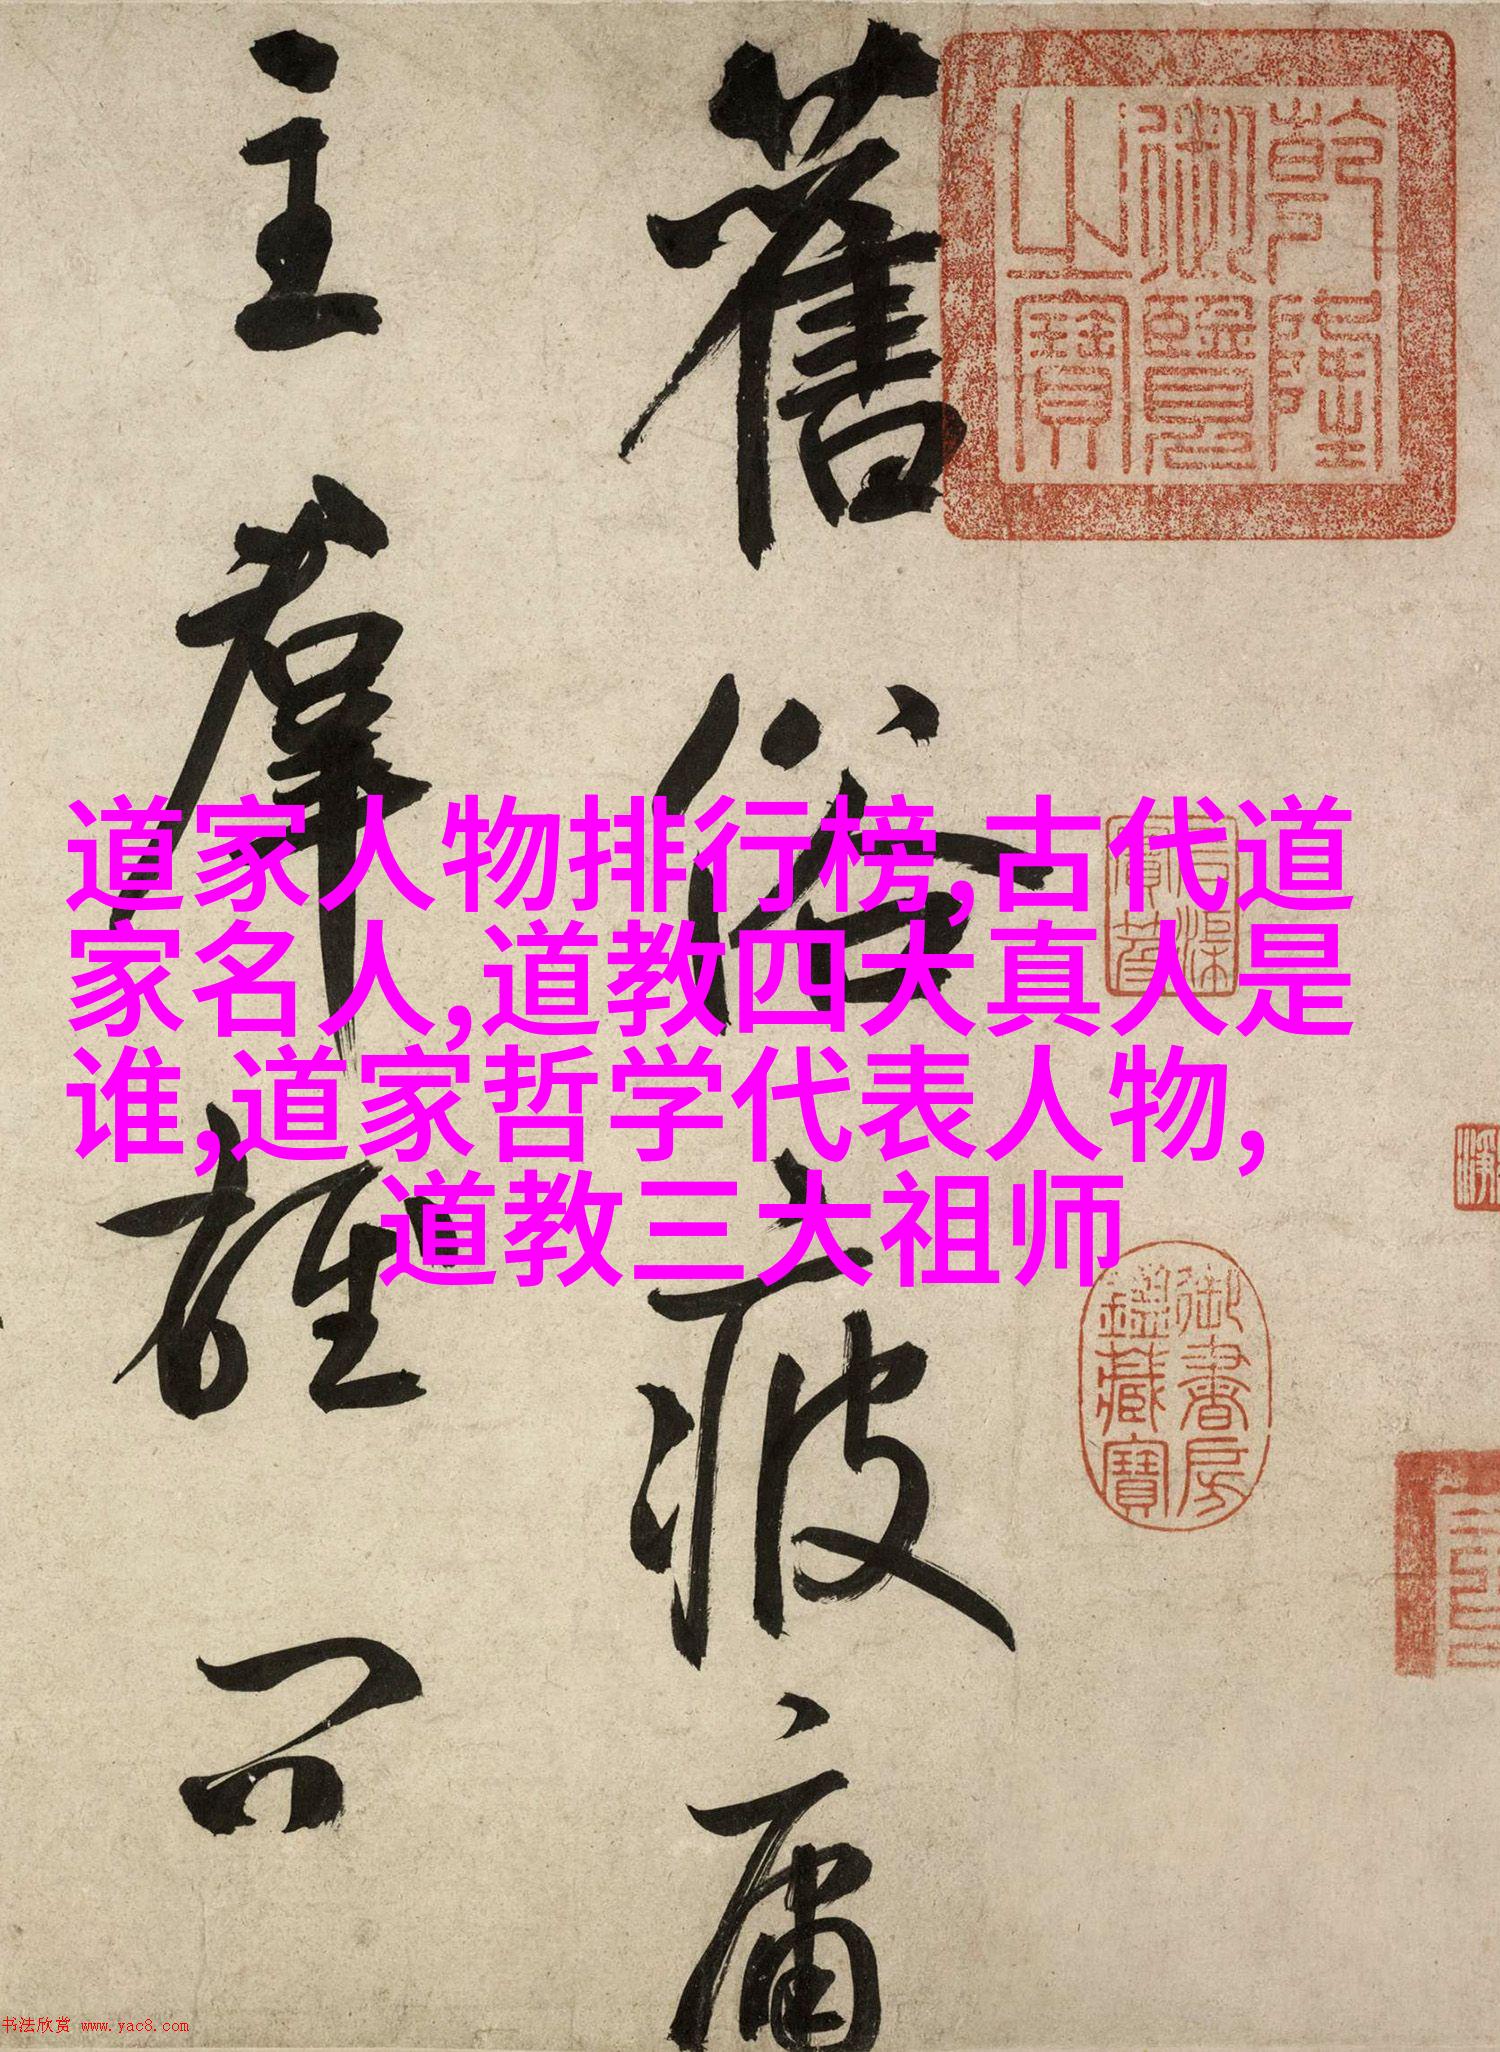 舊俗疲庸
主羣雄只
乾隆御覽之寶
道家人物排行榜,古代道
家名人,道教四大真人是
谁,道家哲学代表人物,
道教三大祖师
石渠寶笈
御書房鑑藏寶
书法欣赏 www.yac8.com